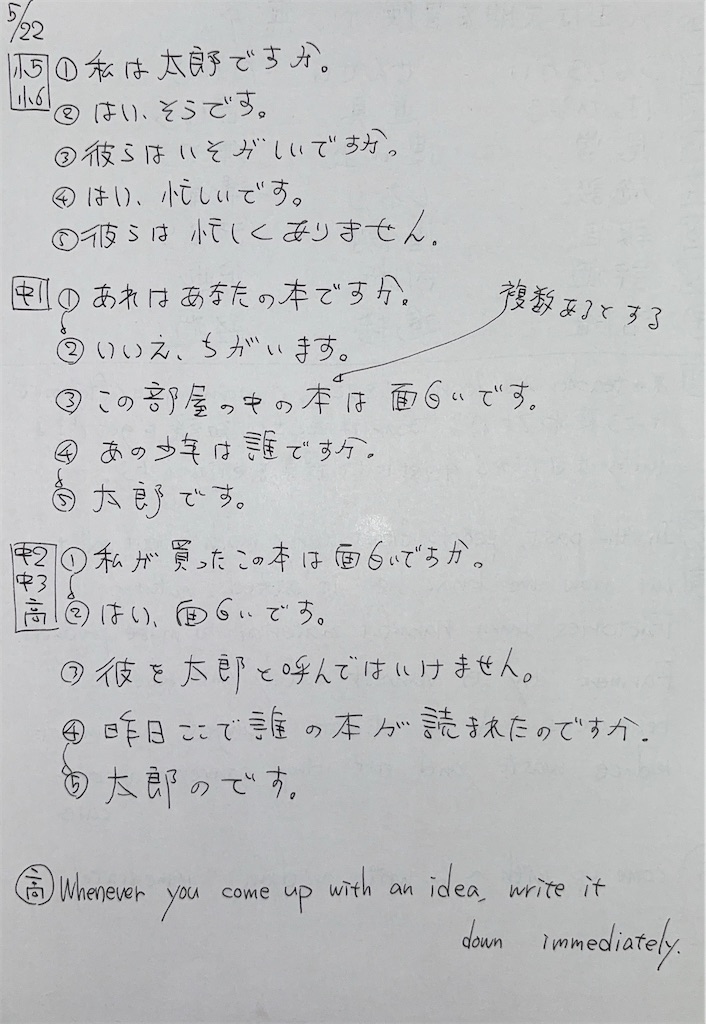 5/22
小5 ① 私は太郎ですか。
小6
② はい、そうです。
③ 彼らはいそがしいですか。
④ はい、忙しいです。
⑤ 彼らは忙しくありません。
中1 ① あれはあなたの本ですか。
複数あるとする
② いいえ、ちがいます。
③ この部屋の中の本は面白いです。
④ あの少年は誰ですか。
⑤ 太郎です。
中2 ① 私が買ったこの本は面白いですか。
中3
高 ② はい、面白いです。
③ 彼を太郎と呼んではいけません。
④ 昨日ここで誰の本が読まれたのですか。
⑤ 太郎のです。
高 Whenever you come up with an idea, write it
down immediately.